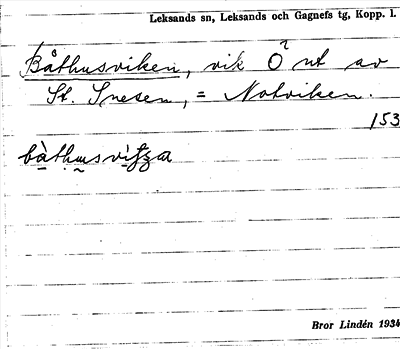 Leksands sn, Leksands och Gagnefs tg, Kopp. l.
Båthusviken, vik Ö nt av
St. Snesen, = Notviken.
153
Bror Lindén 1934